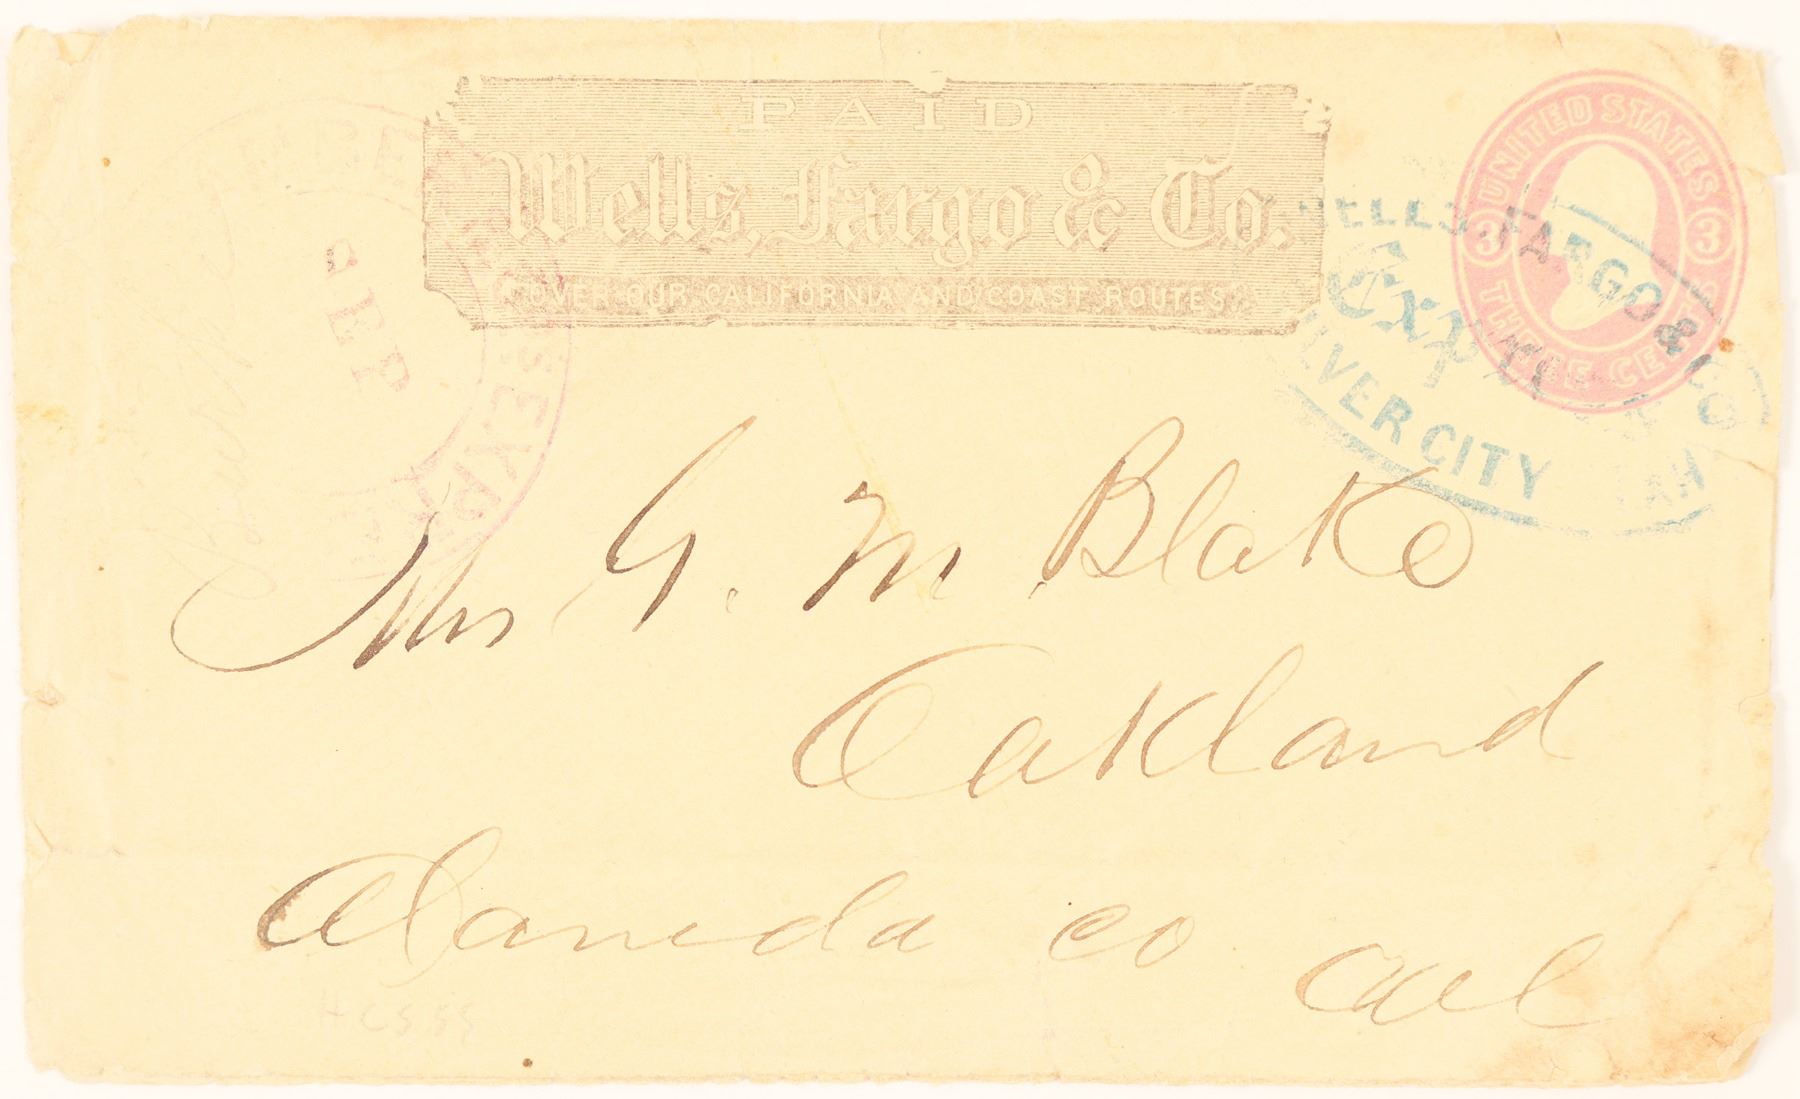 PAID
Wells, Fargo & Co.
OVER OUR CALIFORNIA AND COAST ROUTES.
UNITED STATES
3 3
THREE CENTS
WELLS, FARGO & CO
Express
SILVER CITY
SEP
Mr G. M. Blake
Oakland
Alameda co
Cal